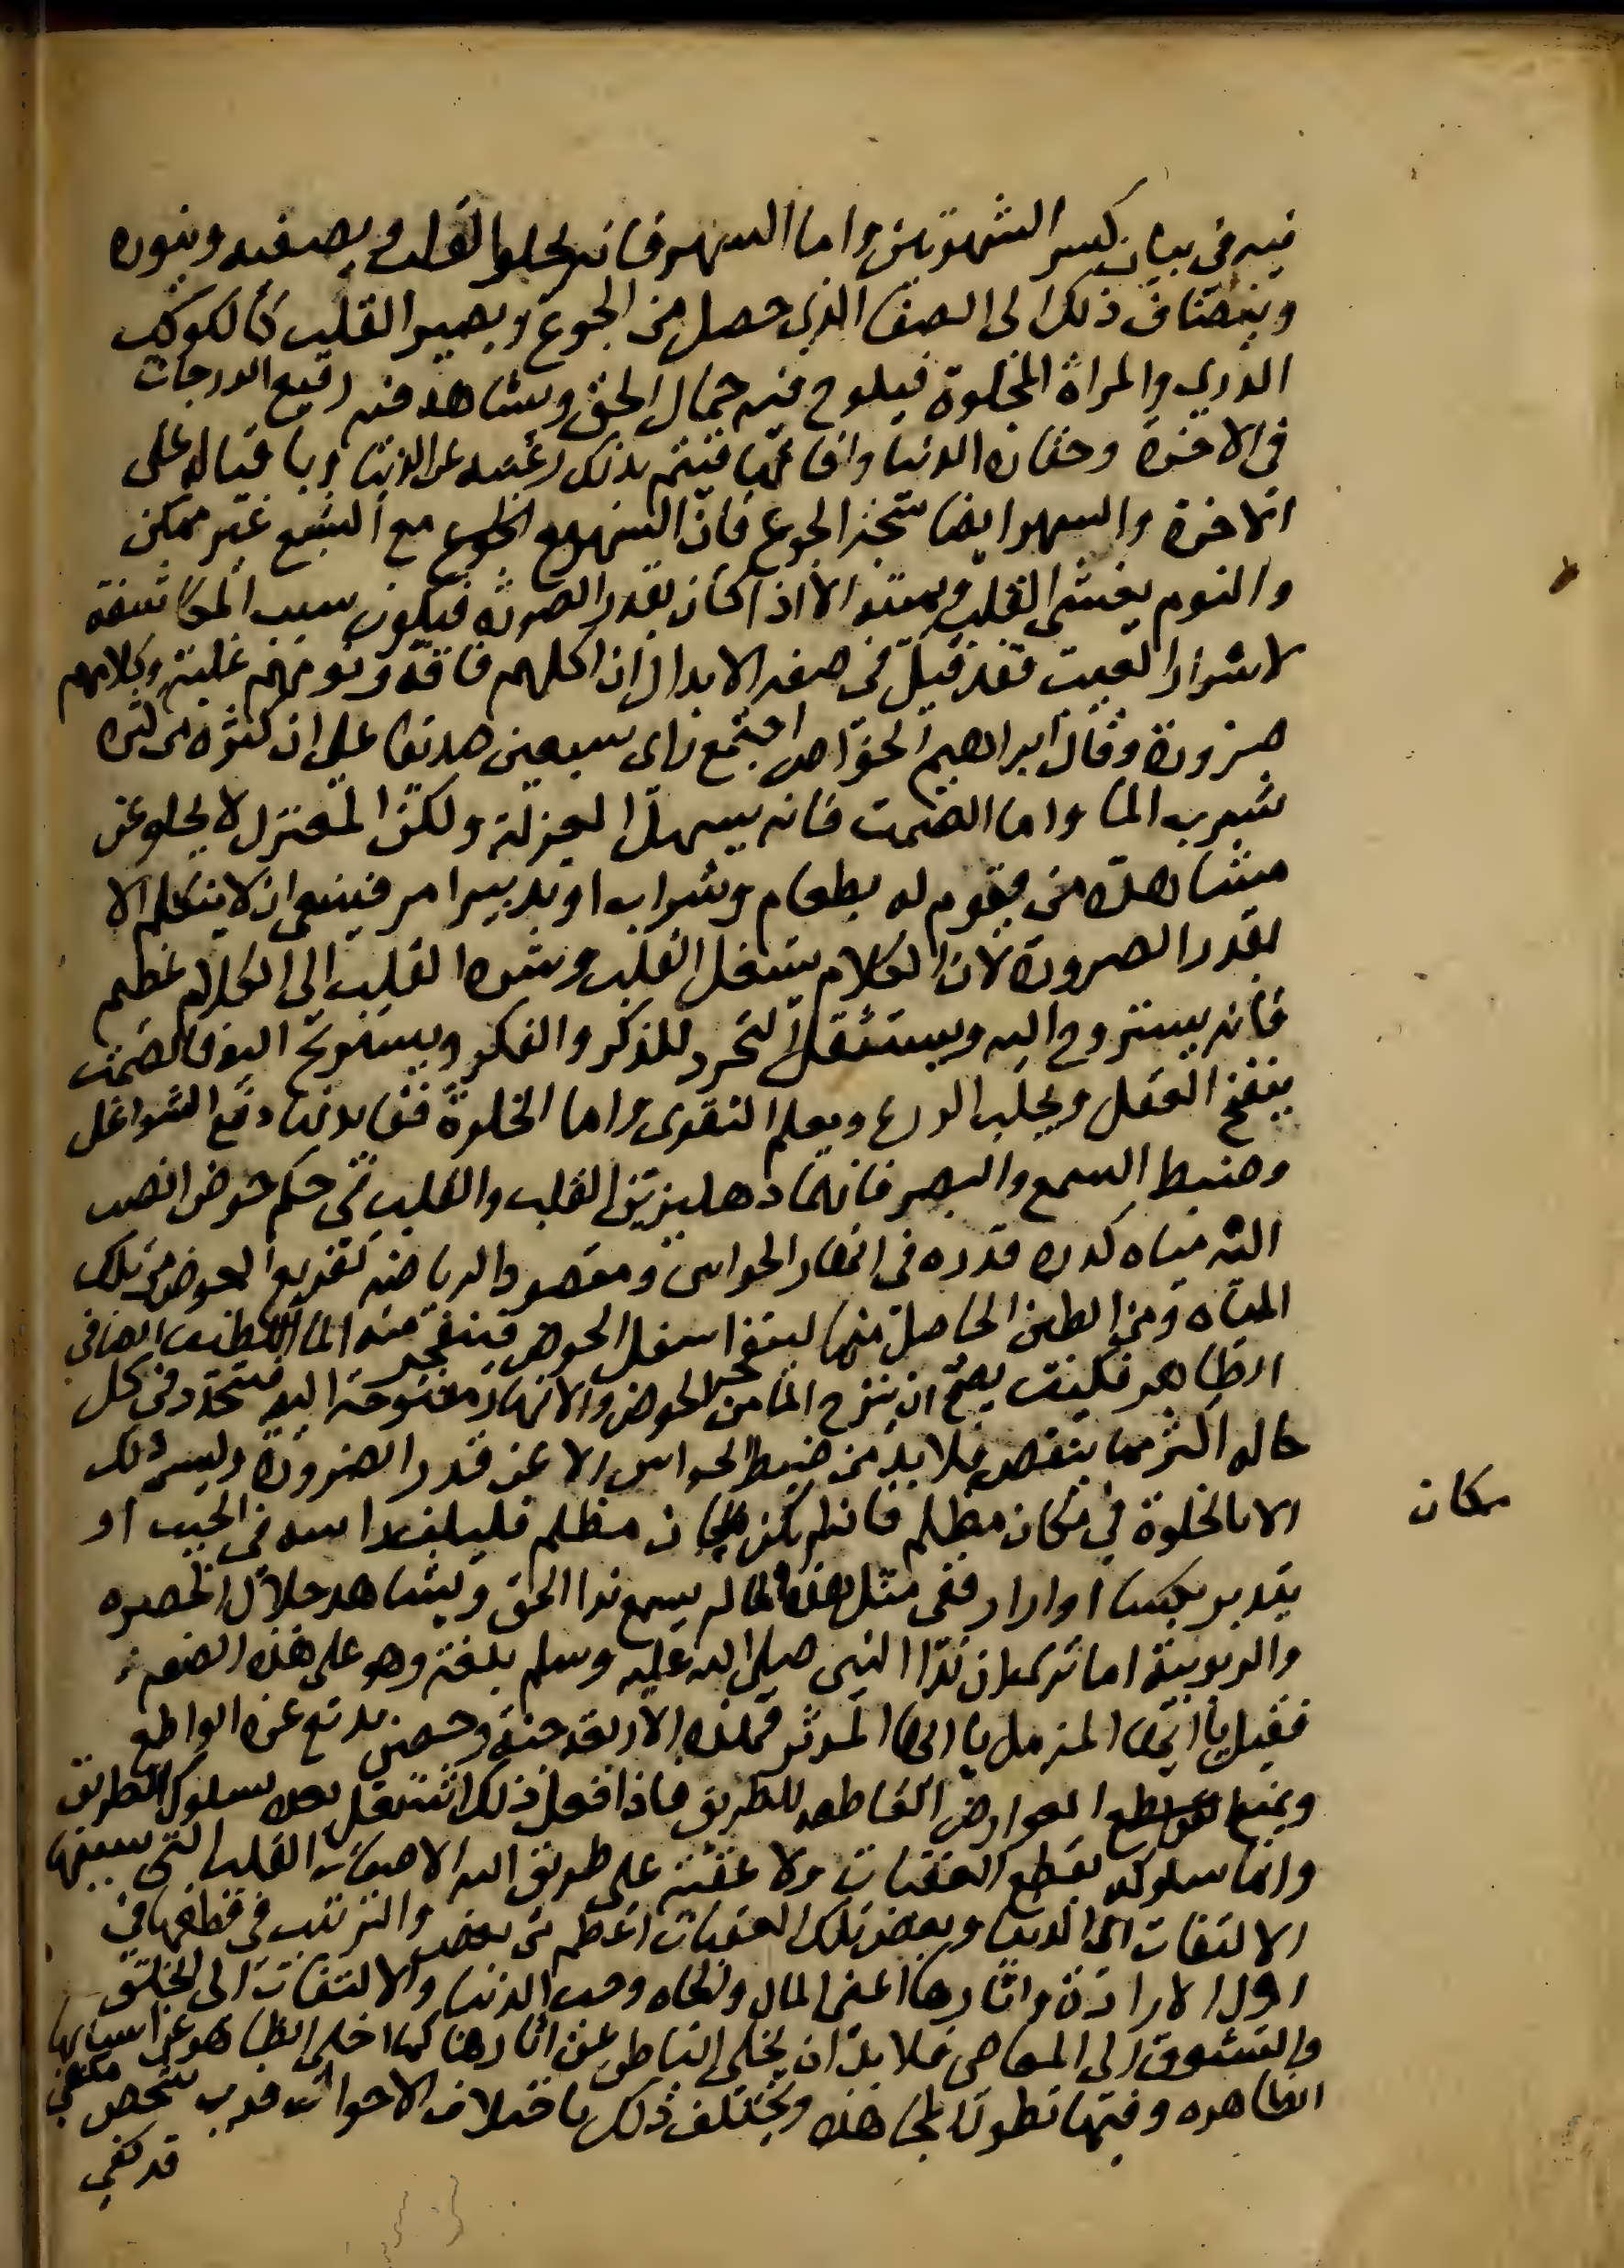 فيه في بيان كسر الشهوتين واما السهر فانه يجلوا القلب ويصفيه وينوره
وينضاف ذلك الى الصفا الذي حصل من الجوع ويصير القلب كالكوكب
الدري والمراة المجلوة فيلوح فيه جمال الحق ويشاهد فيه رفيع الدرجات
في الاخرة وحقارة الدنيا وافاتها فتتم بذلك رغبته عن الدنيا وباقباله على
الاخرة والسهر ايضا نتيجة الجوع فان السهر مع الشبع غير ممكن
والنوم يغشى القلب ويميته الا اذا كان بقدر الضرورة فيكون سبب المكاشفة
لاسرار الغيب فقد قيل في صفة الابدال ان اكلهم فاقة ونومهم غلبة وكلامهم
ضرورة وقال ابراهيم الخواص اجتمع راى سبعين صديقا على ان كثرة من كثرة
شرب الما واما الصمت فانه يسهل العزلة ولكن المعتزل لا يخلو عن
مشاهدة من يقوم له بطعام وشراب او تدبير امر فينبغي ان لا يتكلم الا
بقدر الضرورة لان الكلام يشغل القلب وشره القلب الى الكلام عظيم
فانه يستروح اليه ويستثقل التجرد للذكر والفكر ويستروح اليه فالصمت
ينفخ العقل ويجلب الورع ويعلم التقوى واما الخلوة ففايدتها دفع الشواغل
وضبط السمع والبصر فانهما دهليزتين القلب والقلب في حكم حوض انصب
اليه مياه كدرة قدرة في انهار الحواس ومقصود الرياضة تفريغ الحوض من تلك
المياه ومن الطين الحاصل منها لينفجر اسفل الحوض فينفجر منه الما اللطيف الصافي
الطاهر فكيف يصح ان ينزح الما من الحوض والانهار مفتوحة اليه فيتجدد في كل
حاله اكثر مما ينقص فلا بد من ضبط الحواس الا عن قدر الضرورة وليس ذلك
الا بالخلوة في مكان مظلم فان لم يكن مكان مظلم فليلف راسه في الجيب او
مكان
يتدبر بكسا او ازار ففي مثل هذه الحاله يسمع ندا الحق ويشاهد جلال الحضرة
والربوبية اما ترى ان ندا النبي صلى الله عليه وسلم بلغه وهو على هذه الصفة
فقيل يا ايها المزمل يا ايها المدثر فهذه الاربعة جنة وحصن يدفع عنه القواطع
ويمنع العوارض القاطعه للطريق فاذا فعل ذلك اشتغل بعده بسلوك الطريق
وانما سلوكه بقطع العقبات ولا عقبة على طريق الله الا صفات القلب التي سببها
الالتفات الى الدنيا وبعض تلك العقبات اعظم من بعض والترتيب في قطعها في
اول الارادة واثارها اعني المال والجاه وحب الدنيا والالتفات الى الخلق
والتشوق الى المعاصي فلا بد ان يخلي الباطن عن اثارها كما اخلى الظاهر عن اسبابها
الظاهره وفيها تطول المجاهده ويختلف ذلك باختلاف الاحوال فرب شخص
قد كفي